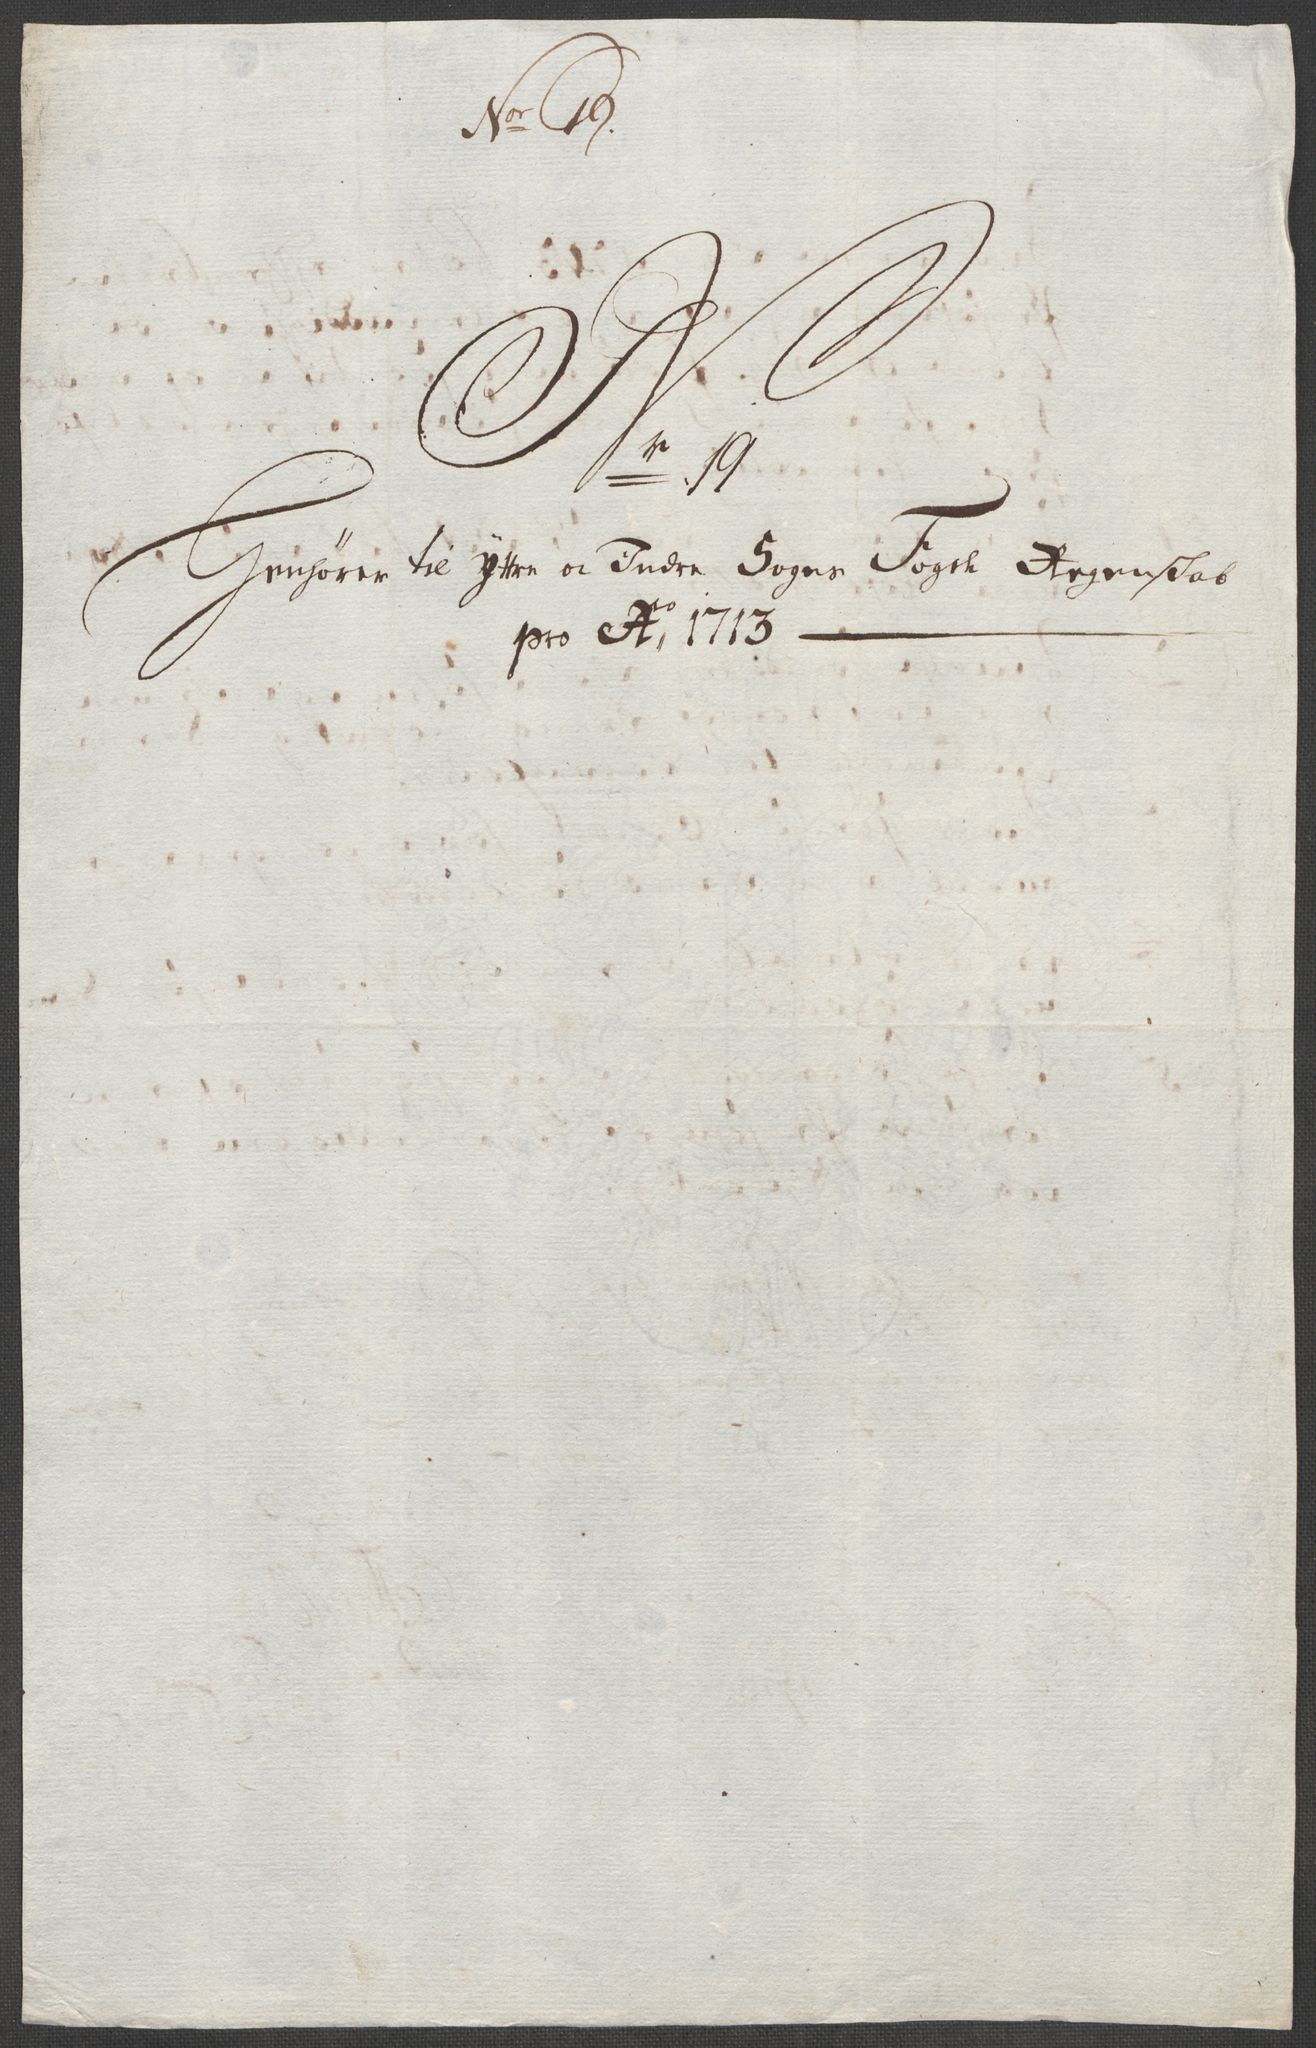 Nor 19.
Nr. 19
Henhører til Yttre oc Indre Sogns Fogd: Regenskab
pro Ao, 1713